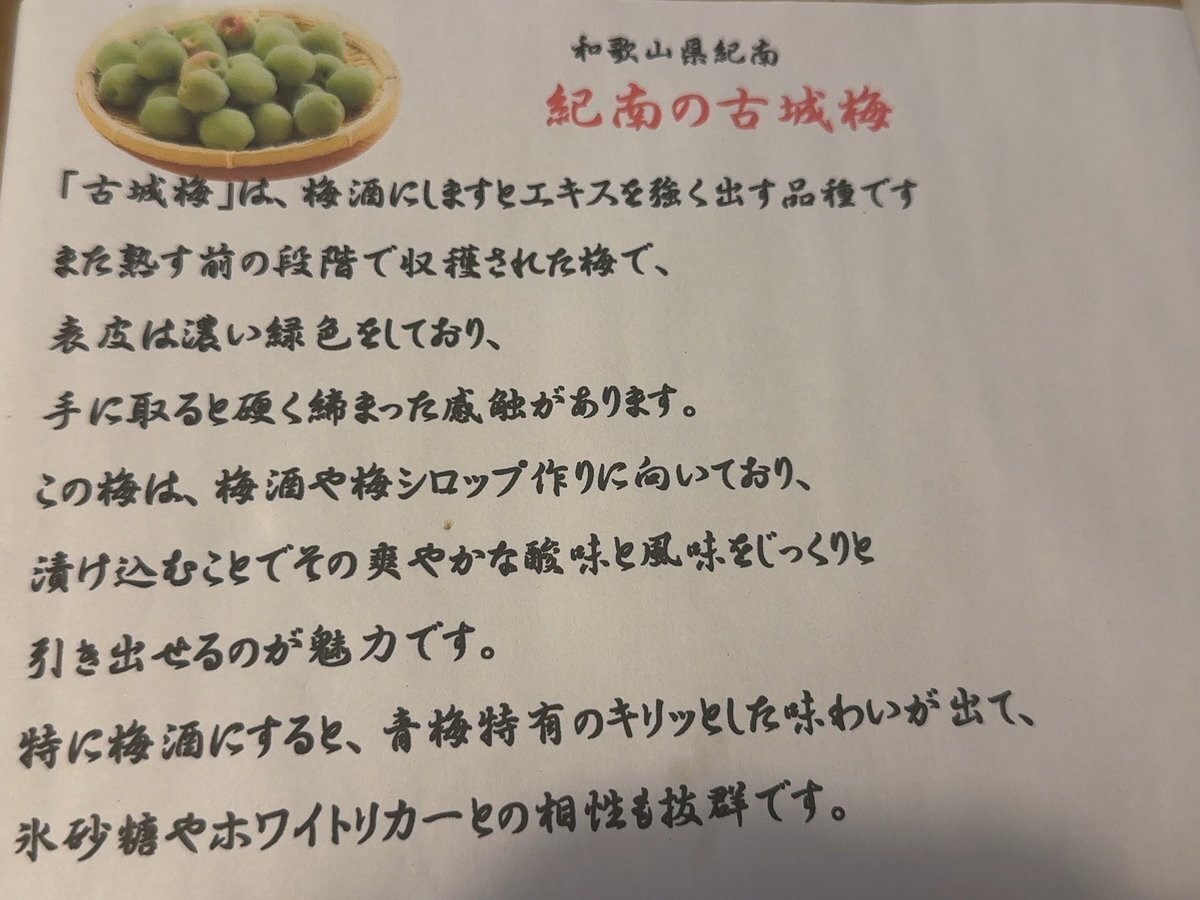 和歌山県紀南
紀南の古城梅
「古城梅」は、梅酒にしますとエキスを強く出す品種です
また熟す前の段階で収穫された梅で、
表皮は濃い緑色をしており、
手に取ると硬く締まった感触があります。
この梅は、梅酒や梅シロップ作りに向いており、
漬け込むことでその爽やかな酸味と風味をじっくりと
引き出せるのが魅力です。
特に梅酒にすると、青梅特有のキリッとした味わいが出て、
氷砂糖やホワイトリカーとの相性も抜群です。